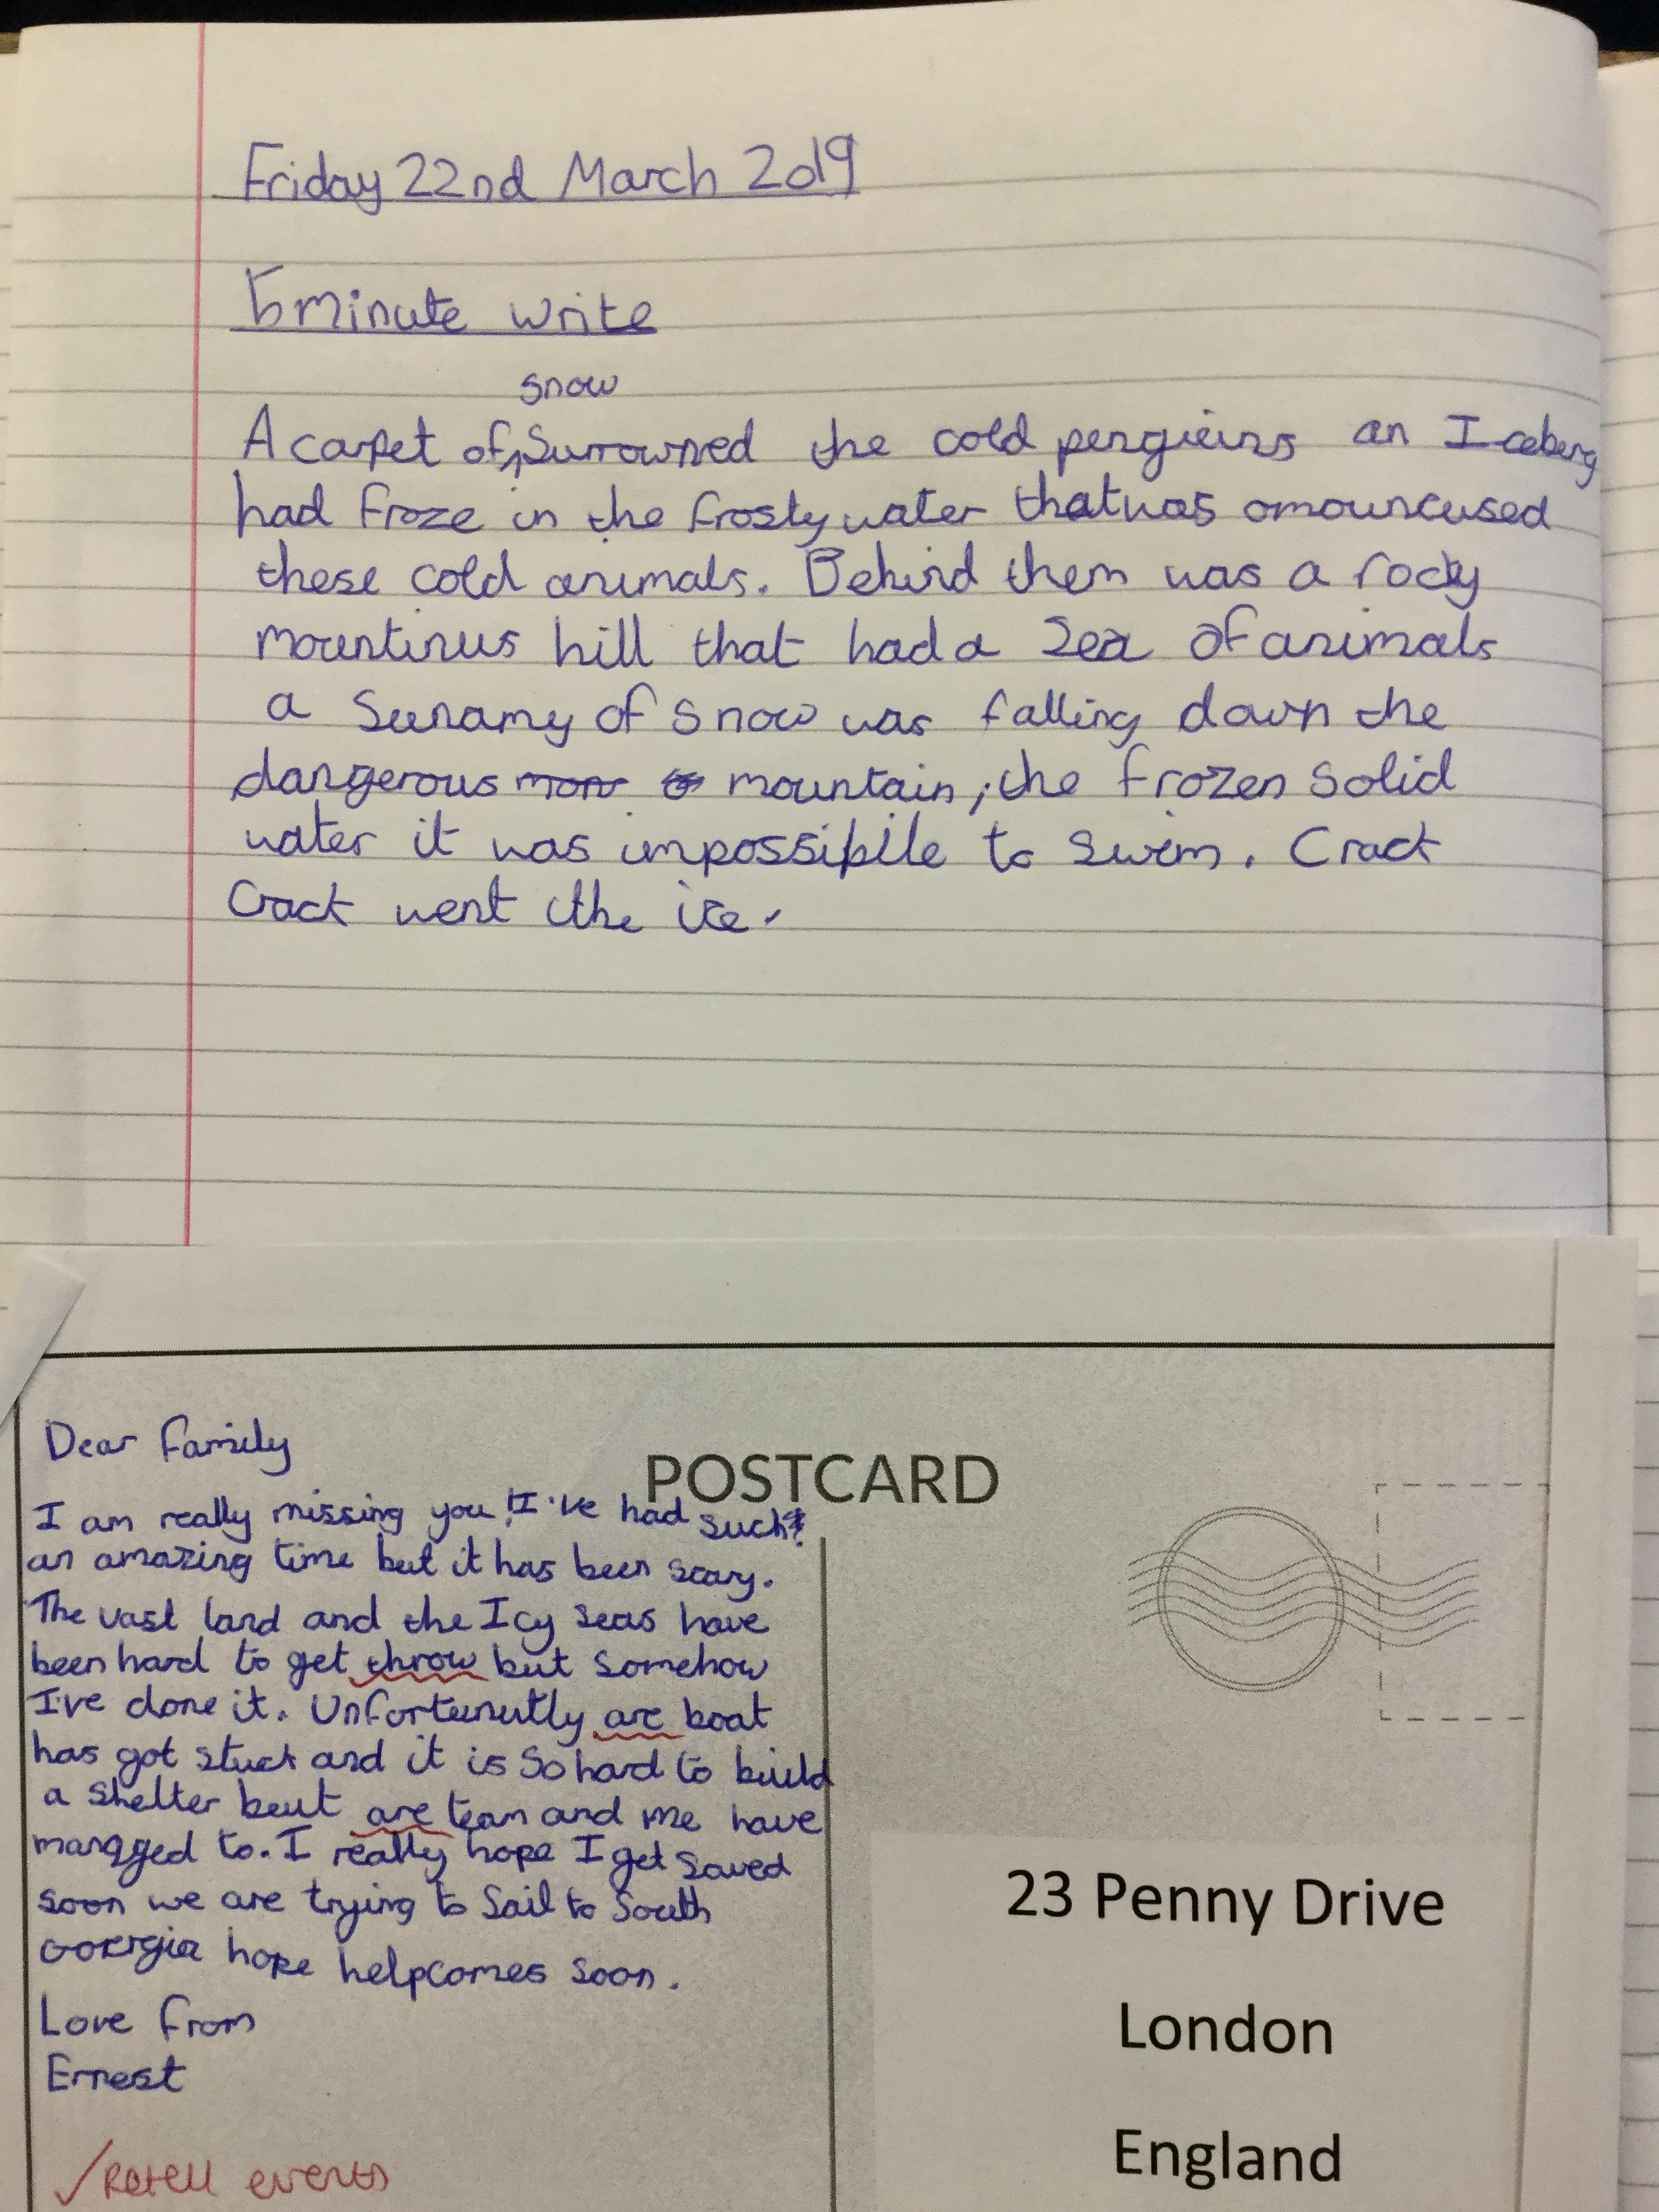 Friday 22nd March 2019
5 minute write
snow
A carpet of, Surrowned the cold pengieins an Iceberg
had froze in the frosty water that was omouncused
these cold animals. Behind them was a rocky
mountinus hill that had a Sea of animals
a Sunamy of snow was falling down the
dangerous mountain, the frozen solid
water it was impossiblle to swim. Crack
Crack went the ice.
POSTCARD
Dear family
I am really missing you! I've had such
an amazing time but it has been scary.
The vast land and the Icy seas have
been hard to get throw but somehow
I've done it. Unfortunutly are boat
has got stuck and it is so hard to build
a shelter beut are team and me have
manged to. I really hope I get saved
soon we are trying to Sail to South
Goergia hope help comes soon.
Love from
Ernest
✓ Retell events
23 Penny Drive
London
England